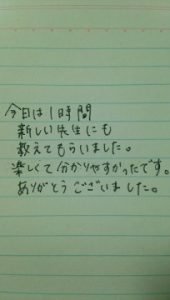 今日は1時間
新しい先生にも
教えてもらいました。
楽しくて分かりやすかったです。
ありがとうございました。